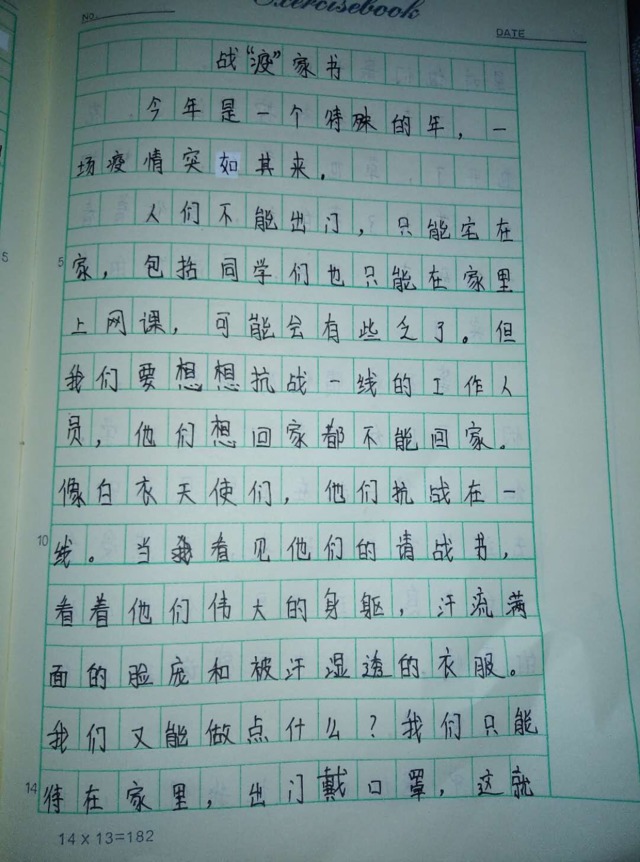 Exercisebook
NO.
DATE
战“疫”家书
今年是一个特殊的年，一
场疫情突如其来．
人们不能出门，只能宅在
5
5
家，包括同学们也只能在家里
上网课，可能会有些乏了。但
我们要想想抗战一线的工作人
员，他们想回家都不能回家。
像白衣天使们，他们抗战在一
10
线。当我看见他们的请战书，
看着他们伟大的身躯，汗流满
面的脸庞和被汗湿透的衣服。
我们又能做点什么？我们只能
14
待在家里，出门戴口罩，这就
14×13=182